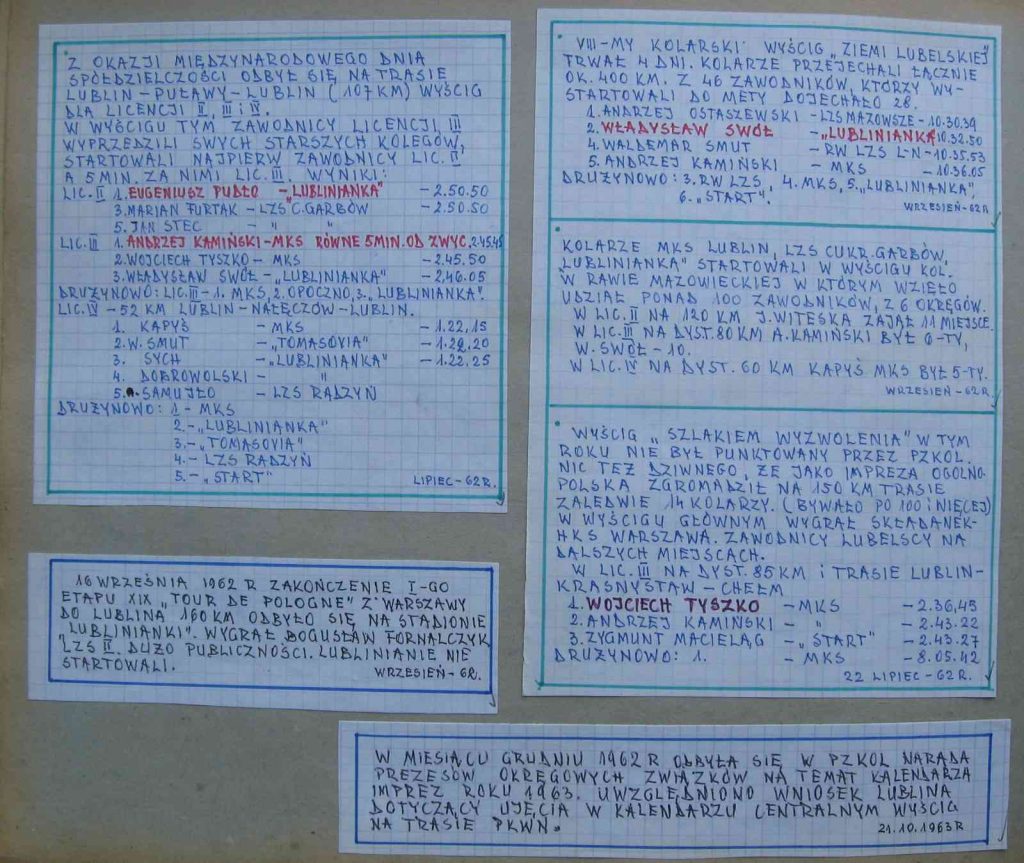 Z OKAZJI MIĘDZYNARODOWEGO DNIA
SPÓŁDZIELCZOŚCI ODBYŁ SIĘ NA TRASIE
LUBLIN-PUŁAWY-LUBLIN (107KM) WYŚCIG
DLA LICENCJI II, III i IV.
W WYŚCIGU TYM ZAWODNICY LICENCJI III
WYPRZEDILI SWYCH STARSZYCH KOLEGÓW,
STARTOWALI NAJPIERW ZAWODNICY LIC. II
A 5 MIN. ZA NIMI LIC. III. WYNIKI:
LIC. II 1. EUGENIUSZ PUDŁO - „LUBLINIANKA" - 2.50.50
3. MARIAN FURTAK - LZS C. GARBÓW - 2.50.50
5. JAN STEC - " "
LIC. III 1. ANDRZEJ KAMIŃSKI-MKS RÓWNE 5MIN. OD ZWYC. 2.45.45
2. WOJCIECH TYSZKO - MKS - 2.45.50
3. WŁADYSŁAW SWÓŁ - „LUBLINIANKA" - 2.46.05
DRUŻYNOWO: LIC. III - 1. MKS, 2. OPOCZNO, 3. „LUBLINIANKA".
LIC. IV - 52 KM LUBLIN-NAŁĘCZÓW-LUBLIN.
1. KAPYŚ - MKS - 1.22,15
2. W. SMUT - „TOMASOVIA" - 1.22,20
3. SYCH - „LUBLINIANKA" - 1.22.25
4. DOBROWOLSKI - "
5. A. SAMUJŁO - LZS RADZYŃ
DRUŻYNOWO: 1 - MKS
2. - „LUBLINIANKA"
3. - „TOMASOVIA"
4. - LZS RADZYŃ
5. - „START"
LIPIEC - 62 R.
16 WRZEŚNIA 1962 R ZAKOŃCZENIE I-GO
ETAPU XIX „TOUR DE POLOGNE" Z WARSZAWY
DO LUBLINA 160 KM ODBYŁO SIĘ NA STADIONIE
„LUBLINIANKI". WYGRAŁ BOGUSŁAW FORNALCZYK
LZS II. DUŻO PUBLICZNOŚCI. LUBLINIANIE NIE
STARTOWALI.
WRZESIEŃ - 62.
VIII-MY KOLARSKI WYŚCIG „ZIEMI LUBELSKIEJ"
TRWAŁ 4 DNI. KOLARZE PRZEJECHALI ŁĄCZNIE
OK. 400 KM. Z 46 ZAWODNIKÓW, KTÓRZY WY-
STARTOWALI DO METY DOJECHAŁO 28.
1. ANDRZEJ OSTASZEWSKI - LZS MAZOWSZE - 10.30.39
2. WŁADYSŁAW SWÓŁ - „LUBLINIANKA" 10.32.50
4. WALDEMAR SMUT - RW LZS L-N - 10.35.53
5. ANDRZEJ KAMIŃSKI - MKS - 10.36.05
DRUŻYNOWO: 3. RW LZS, 4. MKS, 5. „LUBLINIANKA",
6. „START".
WRZESIEŃ - 62 R.
KOLARZE MKS LUBLIN, LZS CUKR. GARBÓW,
„LUBLINIANKA" STARTOWALI W WYŚCIGU KOL.
W RAWIE MAZOWIECKIEJ W KTÓRYM WZIĘŁO
UDZIAŁ PONAD 100 ZAWODNIKÓW, Z 6 OKRĘGÓW.
W LIC. II NA 120 KM J. WITESKA ZAJĄŁ 11 MIEJSCE.
W LIC. III NA DYST. 80 KM A. KAMIŃSKI BYŁ 6-TY,
W. SWÓŁ - 10.
W LIC. IV NA DYST. 60 KM KAPYŚ MKS BYŁ 5-TY.
WRZESIEŃ - 62 R.
WYŚCIG „SZLAKIEM WYZWOLENIA" W TYM
ROKU NIE BYŁ PUNKTOWANY PRZEZ PZKOL.
NIC TEŻ DZIWNEGO, ŻE JAKO IMPREZA OGÓLNO-
POLSKA ZGROMADZIŁ NA 150 KM TRASIE
ZALEDWIE 14 KOLARZY. (BYWAŁO PO 100 i WIĘCEJ)
W WYŚCIGU GŁÓWNYM WYGRAŁ SKŁADANEK-
HKS WARSZAWA. ZAWODNICY LUBELSCY NA
DALSZYCH MIEJSCACH.
W LIC. III NA DYST. 85 KM i TRASIE LUBLIN-
KRASNYSTAW - CHEŁM
1. WOJCIECH TYSZKO - MKS - 2.36,45
2. ANDRZEJ KAMIŃSKI - " - 2.43.22
3. ZYGMUNT MACIELĄG - „START" - 2.43.27
DRUŻYNOWO: 1. - MKS - 8.05.42
22 LIPIEC - 62 R.
W MIESIĄCU GRUDNIU 1962 R ODBYŁA SIĘ W PZKOL NARADA
PREZESÓW OKRĘGOWYCH ZWIĄZKÓW NA TEMAT KALENDARZA
IMPREZ ROKU 1963. UWZGLĘDNIONO WNIOSEK LUBLINA
DOTYCZĄCY UJĘCIA W KALENDARZU CENTRALNYM WYŚCIG
NA TRASIE PKWN.
21.10.1963 R